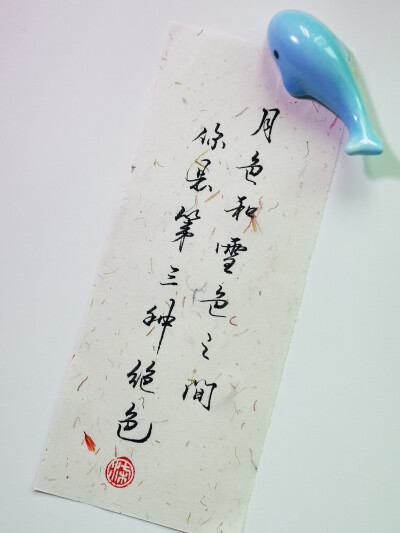 月色和雪色之间
你是第三种绝色